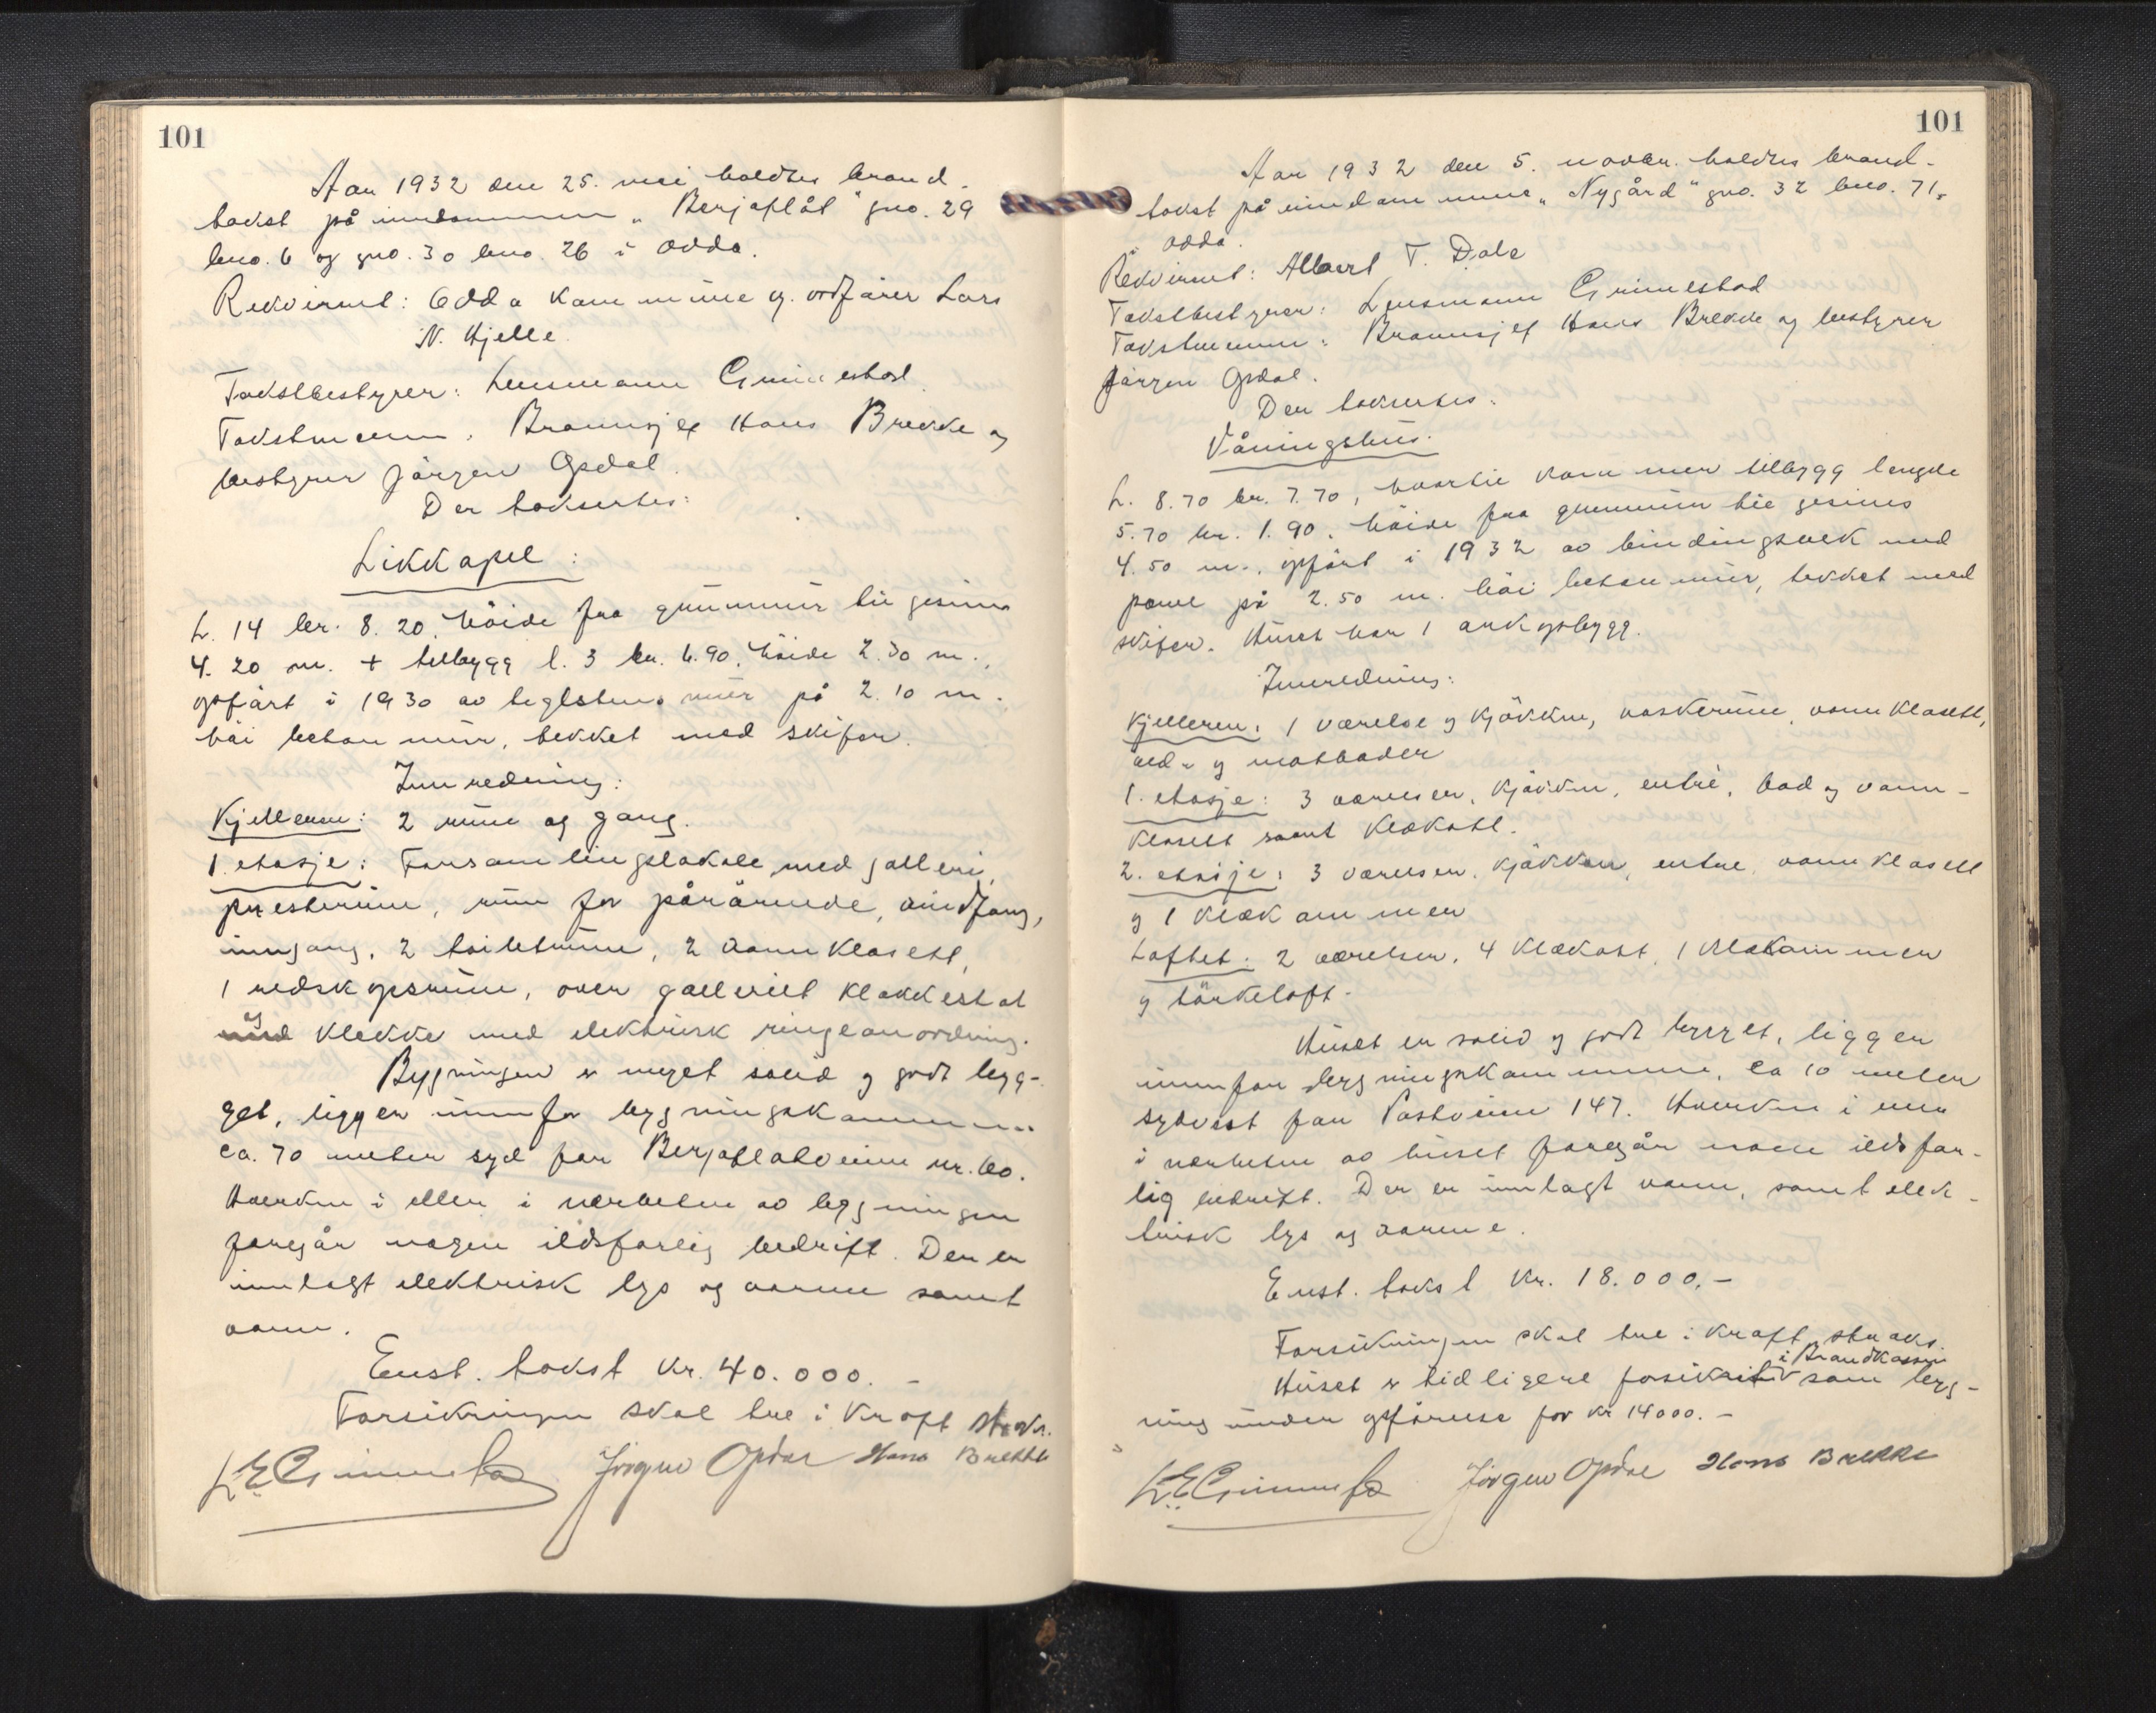 101
Aar 1932 den 25. mai holdtes brand-
takst på eiendommen „Berjaflåt" gno. 29
bno. 6 og gno. 30 bno. 26 i Odda.
Rekvirent: Odda kommune v. ordfører Lars
N. Hjelle.
Takstbestyrer: Lensmann Grimestad.
Takstmenn: Brannsjef Hans Brekke og
bestyrer Jørgen Opdal.
Der taksertes:
Likkapel:
L. 14 br. 8.20. høide fra grunmur til gesims
4.20 m. + tilbygg l. 3 br. 6.90. høide 2.30 m.,
opført i 1930 av teglstens mur på 2.10 m.
høi betonmur, tekket med skifer.
Innredning:
Kjelleren: 2 rum og gang.
1. etasje: Forsamlingslokale med galleri,
presterum, rum for pårørende, vindfang,
inngang, 2 toiletrum, 2 vannklosett,
1 redskapsrum, over galleriet klokkestol
og klokke med elektrisk ringeanordning.
Bygningen er meget solid og godt byg-
get, ligger innenfor bygningskommunen
ca. 70 meter syd for Berjaflatveien nr. 60.
Hverken i eller i nærheten av bygningen
foregår nogen ildsfarlig bedrift. Der er
innlagt elektrisk lys og varme samt
vann.
Enst. takst kr. 40.000.-
Forsikringen skal tre i kraft straks.
L. E. Grimestad Jørgen Opdal Hans Brekke
101
Aar 1932 den 5. novbr. holdtes brand-
takst på eiendommen „Nygård" gno. 32 bno. 71,
i Odda.
Rekvirent: Albert T. Dale
Takstbestyrer: Lensmann Grimestad
Takstmenn: Brannsjef Hans Brekke og bestyrer
Jørgen Opdal.
Der taksertes:
Våningshus.
L. 8.70 br. 7.70, hvortil kommer tilbygg lengde
5.70 br. 1.90. høide fra grunmur til gesims
4.50 m., opført i 1932 av bindingsverk med
panel på 2.50 m. høi betonmur, tekket med
skifer. Huset har 1 arkopbygg.
Innredning:
Kjelleren: 1 værelse og kjøkken, vaskerum, vannklosett,
ved- og matboder
1. etasje: 3 værelser, kjøkken, entré, bad og vann-
klosett samt klækott.
2. etasje: 3 værelser, kjøkken, entre, vannklosett
og 1 klækammer
Loftet: 2 værelser, 4 klækott, 1 klækammer
og tørkeloft.
Huset er solid og godt bygget, ligger
innenfor bygningskommunen, ca 10 meter
sydvest for Postveien 147. Hverken i eller
i nærheten av huset foregår noen ildsfar-
lig bedrift. Der er innlagt vann, samt elek-
trisk lys og varme.
Enst. takst kr. 18.000.-
Forsikringen skal tre i kraft straks.
i Brandkassen
Huset er tidligere forsikret som byg-
ning under opførelse for kr 14000.-
L. E. Grimestad Jørgen Opdal Hans Brekke